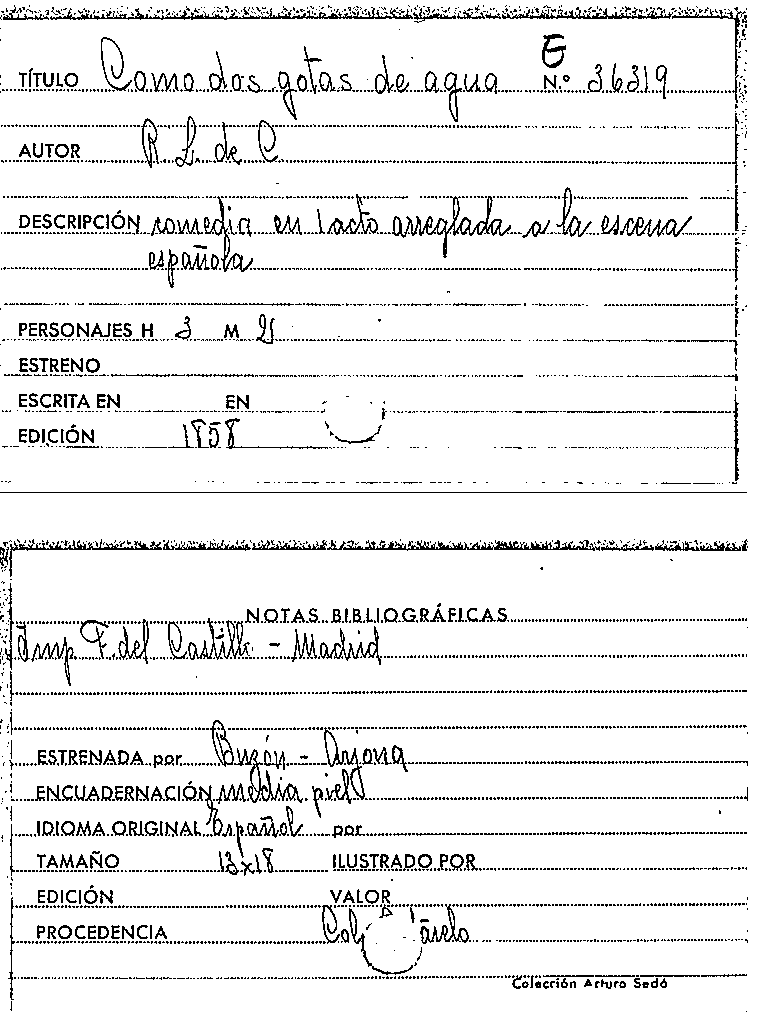 G
TÍTULO Como dos gotas de agua N.º 36319
AUTOR R. L. de C
DESCRIPCIÓN comedia en 1 acto arreglada a la escena
española
PERSONAJES H 3 M
ESTRENO
ESCRITA EN EN
EDICIÓN 1858
NOTAS BIBLIOGRÁFICAS
Imp F. del Castillo - Madrid
ESTRENADA por Buzón - Arjona
ENCUADERNACIÓN media piel
IDIOMA ORIGINAL Español por
TAMAÑO 13x18 ILUSTRADO POR
EDICIÓN VALOR
PROCEDENCIA
Colección Arturo Sedó